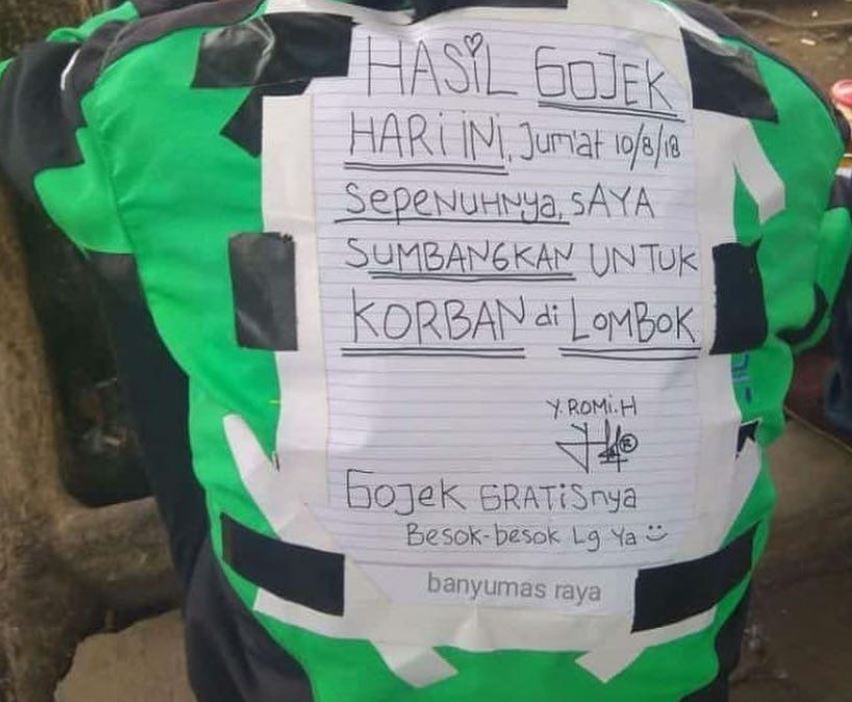 HASiL GOJEK
HARi iNi, Jum'at 10/8/18
SePeNUHNya, SAYA
SUMBANGKAN UNTUK
KORBAN di LOMBOK
Y. ROMi. H
GOJEK GRATiSnya
Besok-besok Lg Ya
banyumas raya